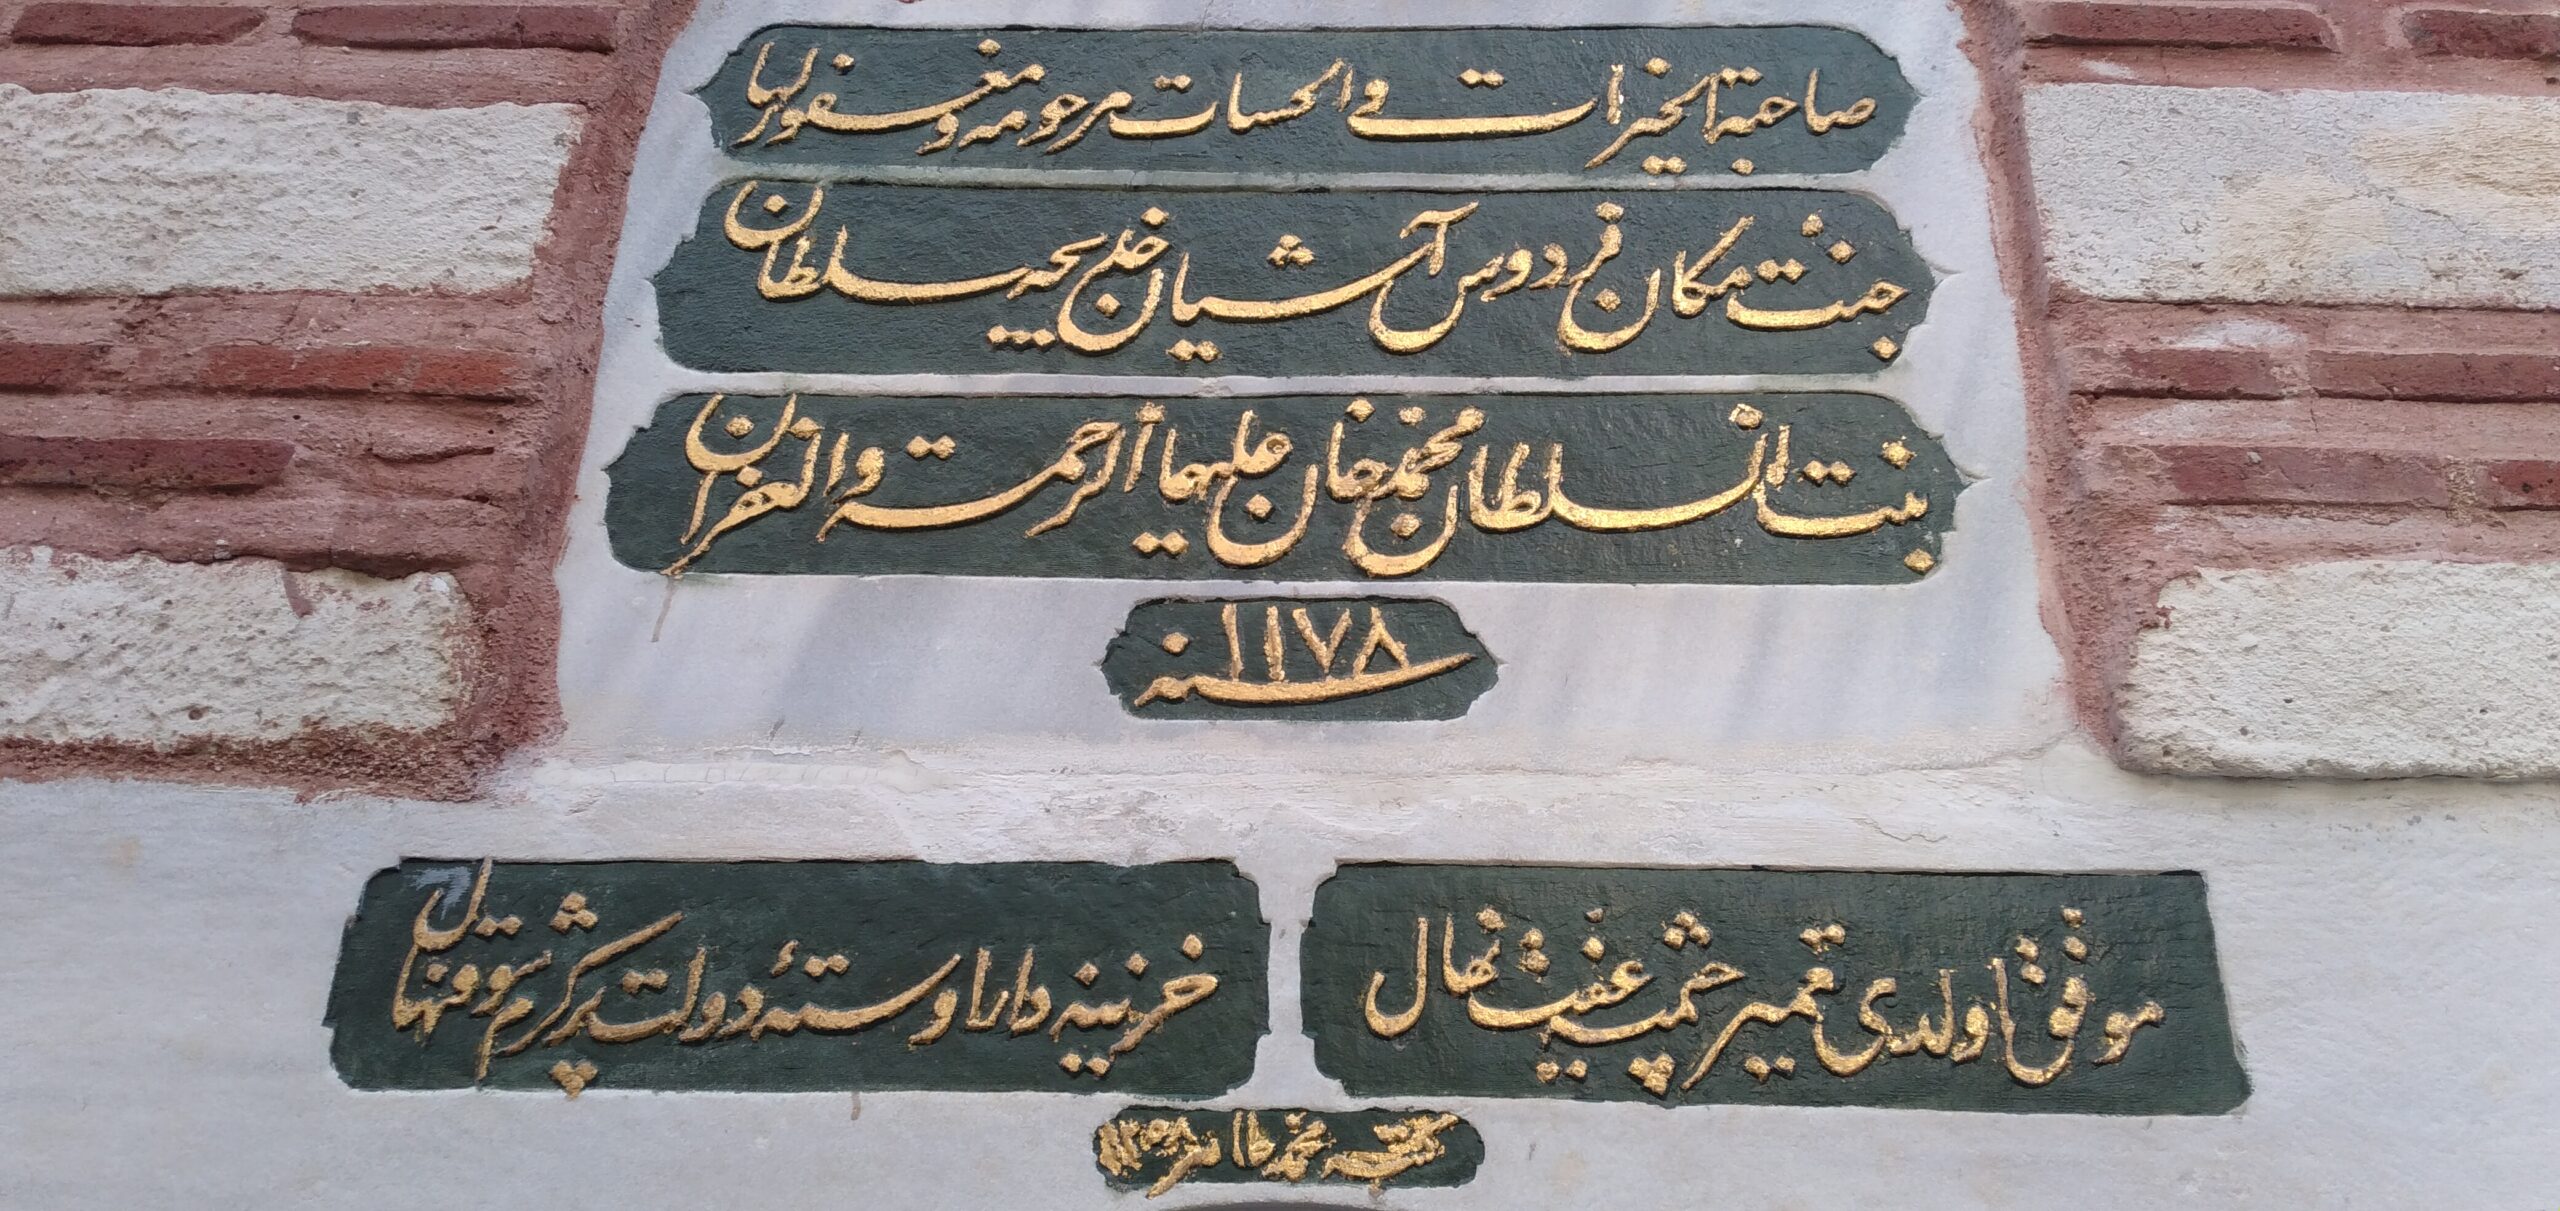 صاحبة الخيرات و الحسنات مرحومه و مغفور لها
جنت مكان فردوس آشيان خديجه سلطان
بنت السلطان محمد خان عليهما الرحمة و الغفران
سنه ١١٧٨
موفق اولدى تعمير چشمه يه عفت نهال
خزينه دار اوسته دولت پر كرم شوقنهال
كتبه محمد طاهر ١٢٥٨